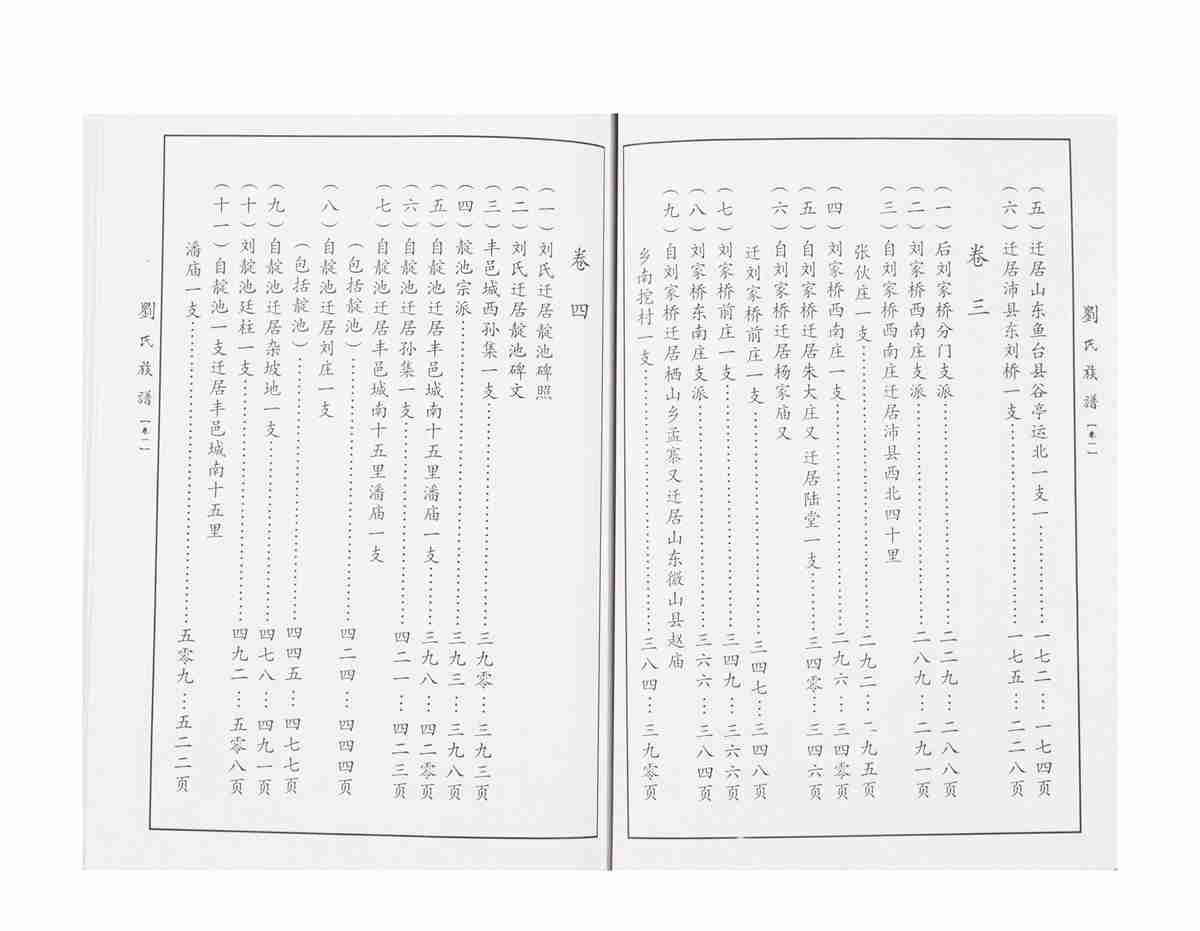 劉氏族譜【卷一】
（五）迁居山东鱼台县谷亭运北一支一…………一七二…一七四页
（六）迁居沛县东刘桥一支…………一七五…二二八页
卷三
（一）后刘家桥分门支派…………二二九…二八八页
（二）刘家桥西南庄支派…………二八九…二九一页
（三）自刘家桥西南庄迁居沛县西北四十里
张伙庄一支…………二九二…二九五页
（四）刘家桥西南庄一支…………二九六…三四零页
（五）自刘家桥迁居朱大庄又迁居陆堂一支…………三四零…三四六页
（六）自刘家桥迁居杨家庙又
迁刘家桥前庄一支…………三四七…三四八页
（七）刘家桥前庄一支…………三四九…三六六页
（八）刘家桥东南庄支派…………三六六…三八四页
（九）自刘家桥迁居栖山乡孟寨又迁居山东微山县赵庙
乡南挖村一支…………三八四…三九零页
卷四
（一）刘氏迁居靛池碑照
（二）刘氏迁居靛池碑文
（三）丰邑城西孙集一支…………三九零…三九三页
（四）靛池宗派…………三九三…三九八页
（五）自靛池迁居丰邑城南十五里潘庙一支…………三九八…四二零页
（六）自靛池迁居孙集一支…………四二一…四二三页
（七）自靛池迁居丰邑城南十五里潘庙一支
（包括靛池）…………四二四…四四四页
（八）自靛池迁居刘庄一支
（包括靛池）…………四四五…四七七页
（九）自靛池迁居杂坡地一支…………四七八…四九一页
（十）刘靛池廷柱一支…………四九二…五零八页
（十一）自靛池一支迁居丰邑城南十五里
潘庙一支…………五零九…五二二页
劉氏族譜【卷一】